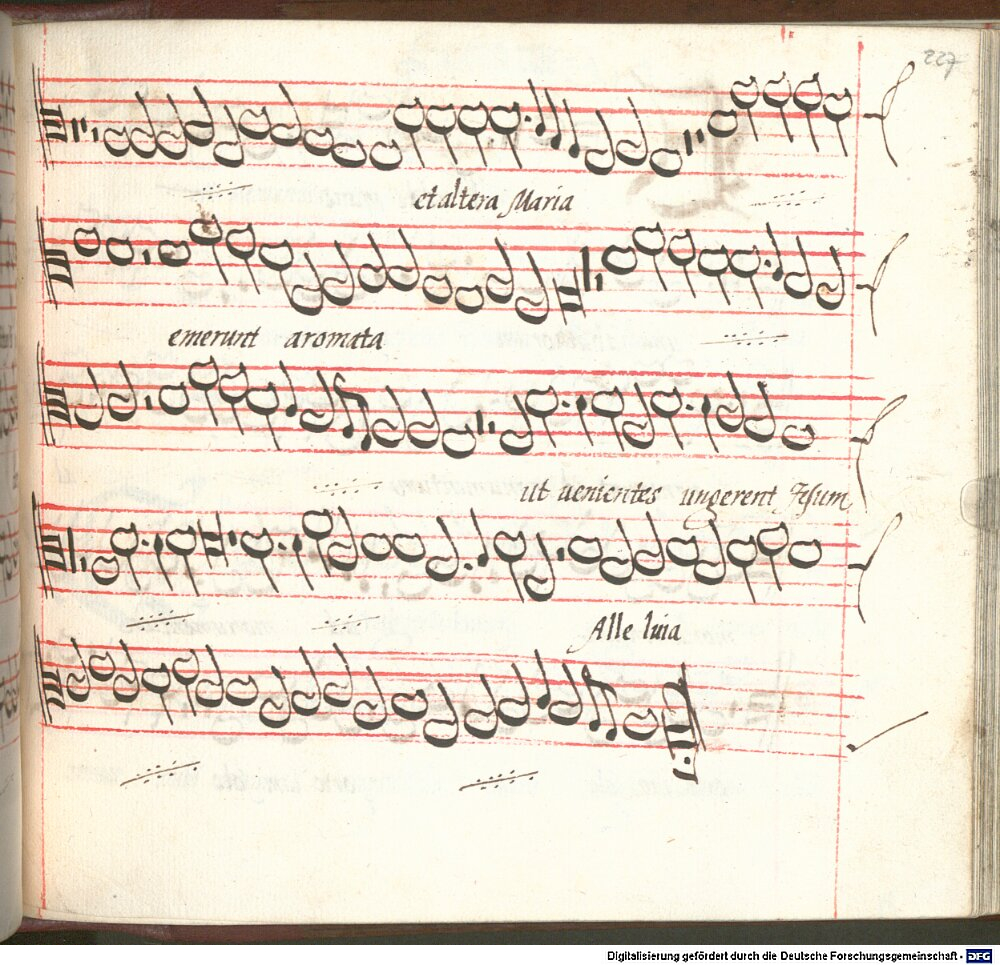 227
et altera Maria
emerunt aromata
ut uenientes ungerent Jesum
Alle luia
Digitalisierung gefördert durch die Deutsche Forschungsgemeinschaft - DFG